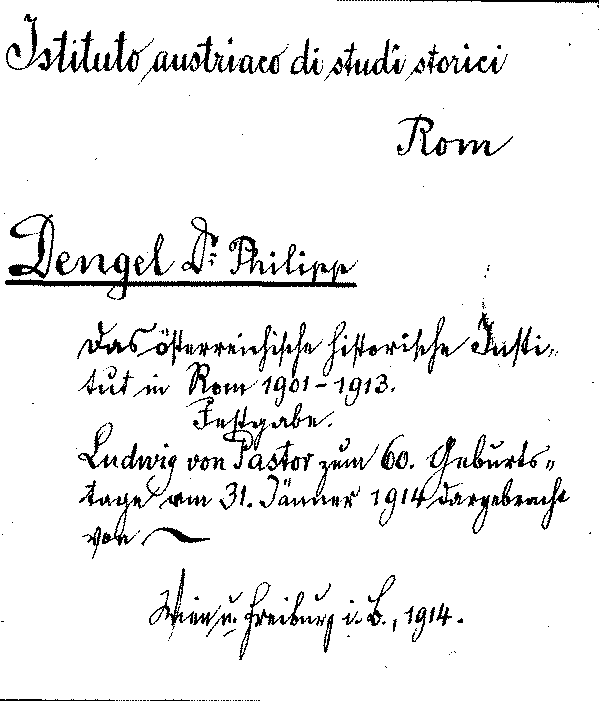 Istituto austriaco di studi storici
Rom
Dengel Dr: Philipp
Das österreichische historische Insti-
tut in Rom 1901-1913.
Festgabe.
Ludwig von Pastor zum 60. Geburts-
tage am 31. Jänner 1914 dargebracht
von ~
Wien u. Freiburg i. B., 1914.